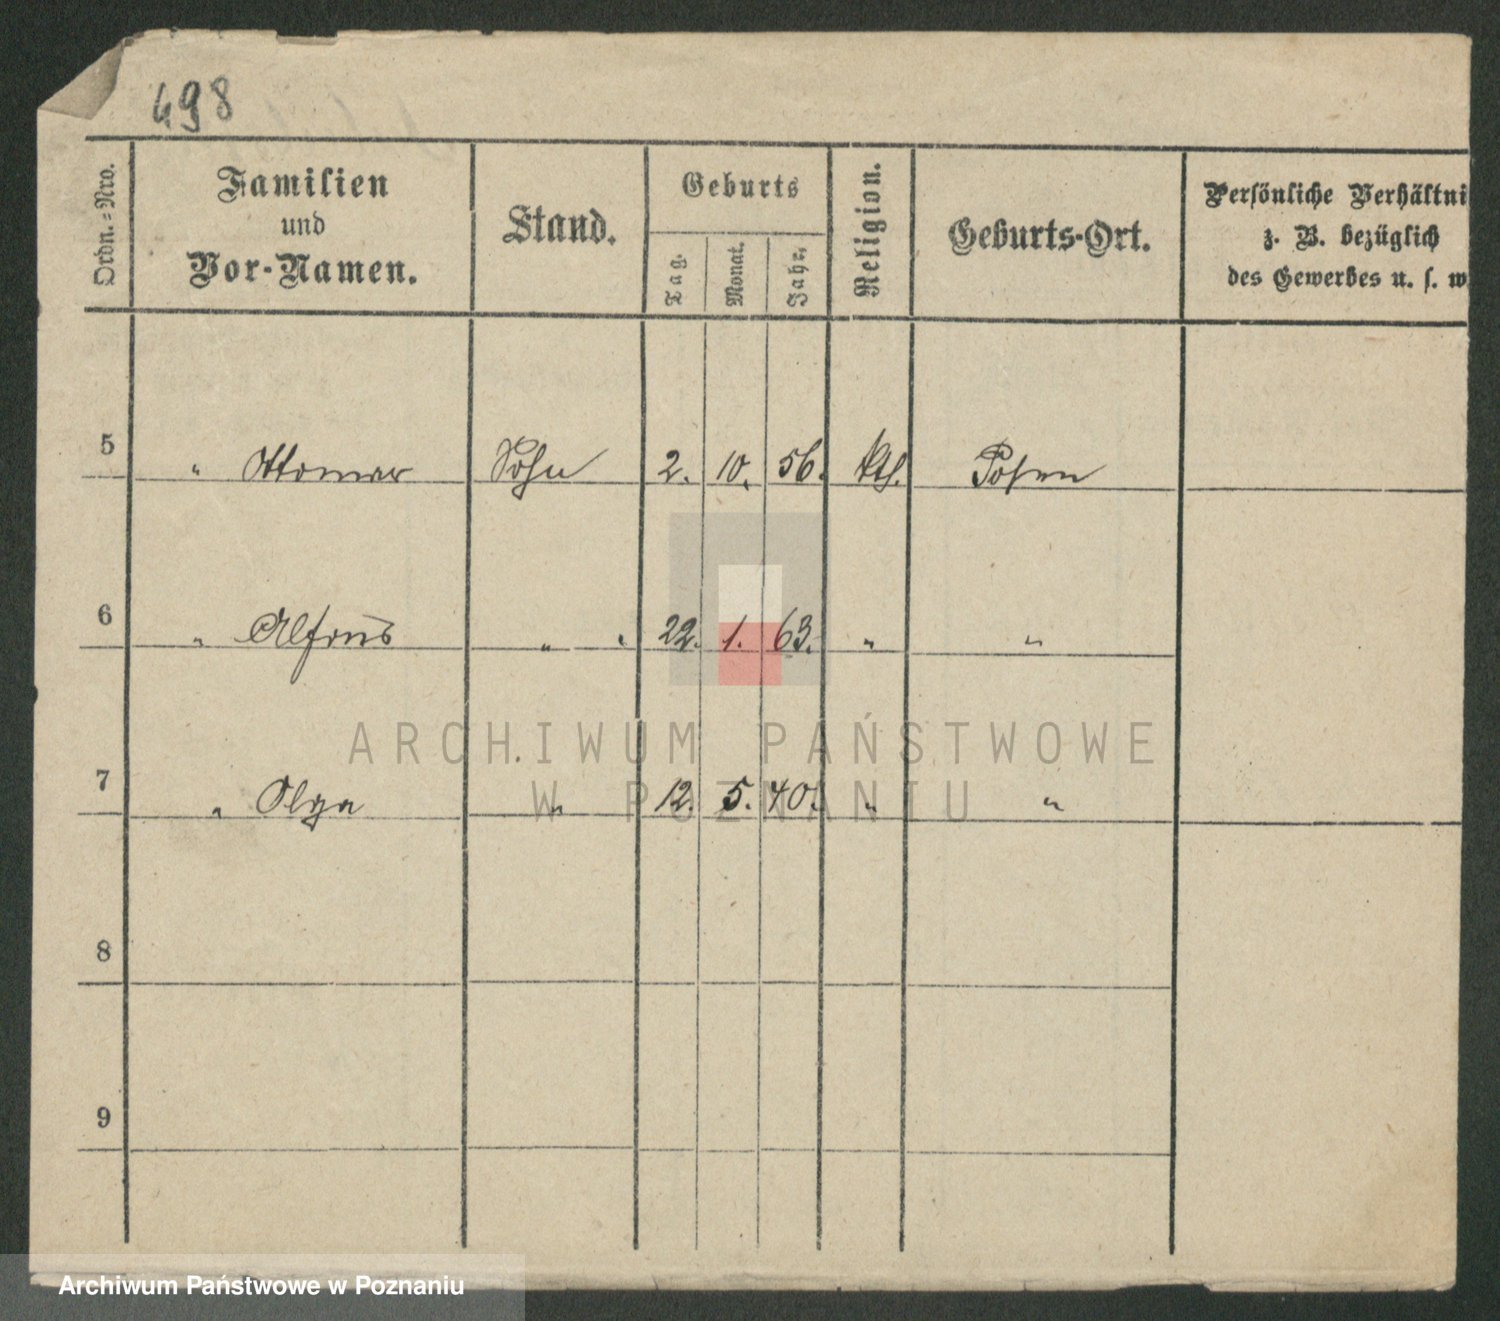 498
Ordn.=Nro.
Familien
und
Vor-Namen.
Stand.
Geburts
Tag.
Monat.
Jahr.
Religion.
Geburts-Ort.
Persönliche Verhältni
z. B. bezüglich
des Gewerbes u. s. w
5 " Ottomar Sohn 2. 10. 56. kth. Posen
6 " Alfons " 22. 1. 63. " "
ARCHIWUM PAŃSTWOWE
W POZNANIU
7 " Olga " 12. 5. 40. " "
8
9
Archiwum Państwowe w Poznaniu